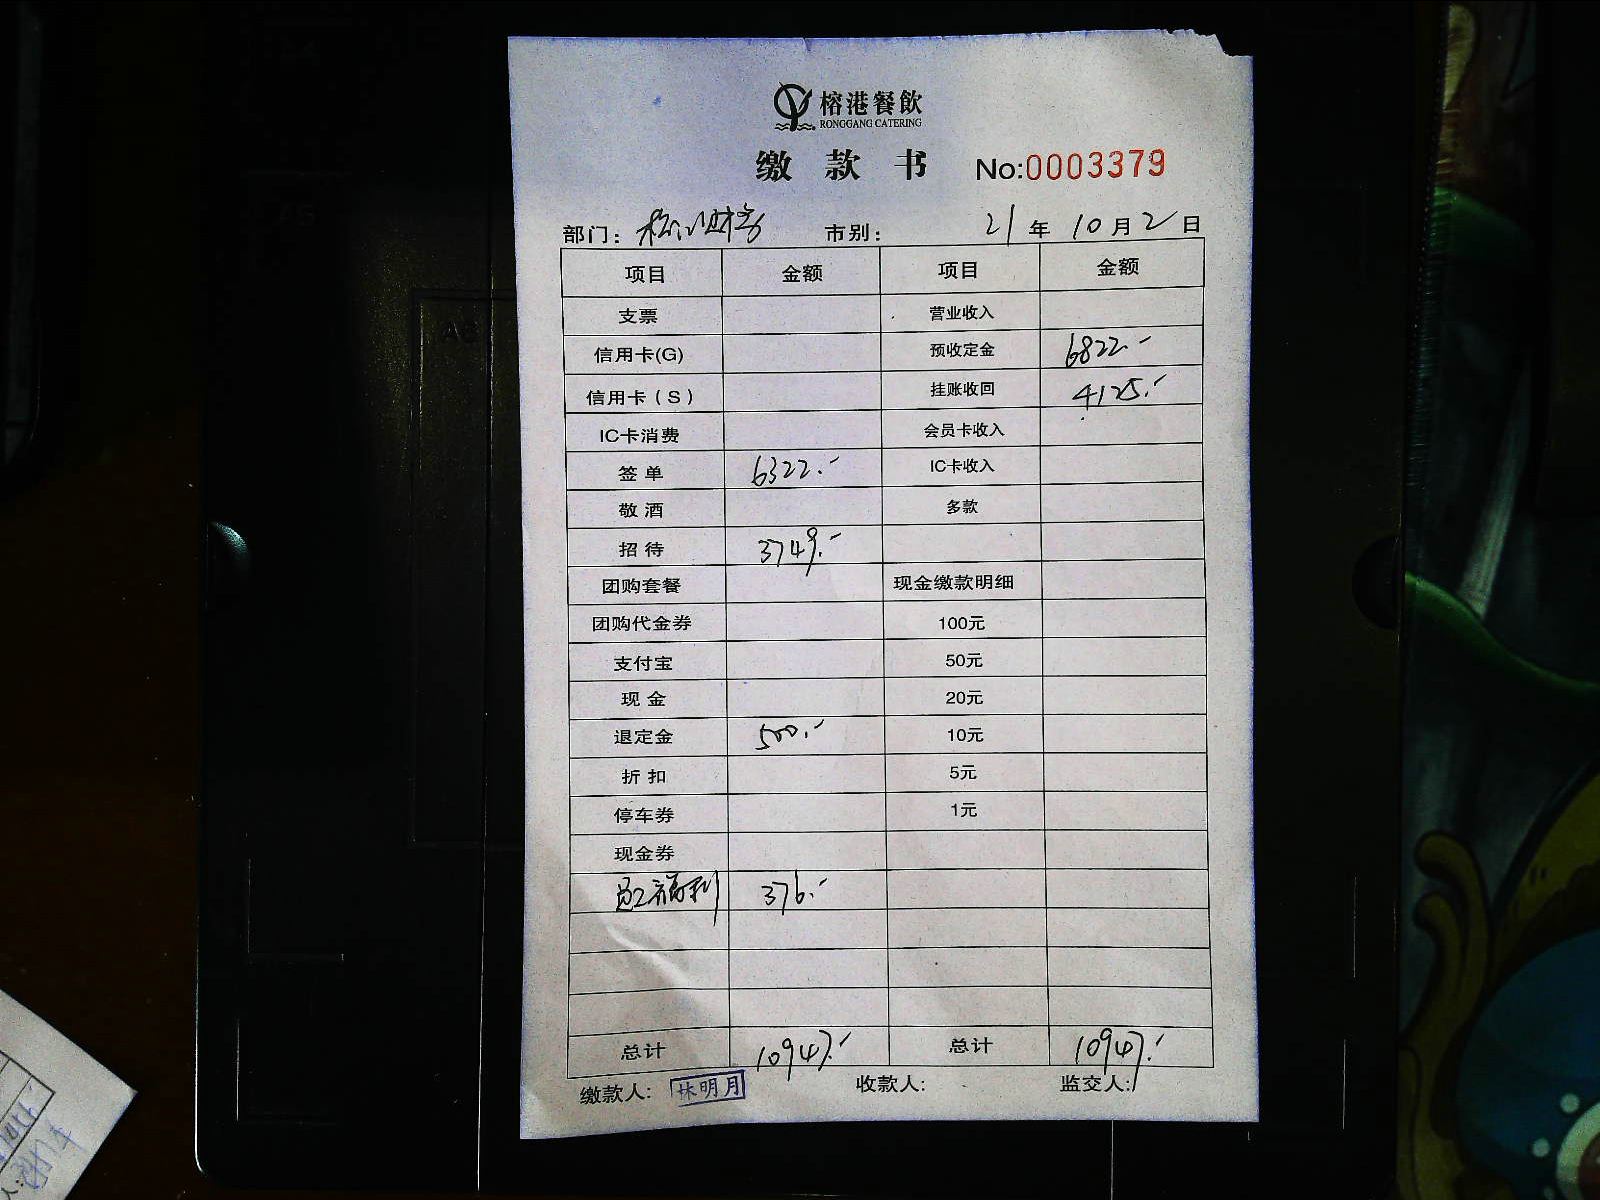 榕港餐飲
RONGGANG CATERING
缴 款 书 No:0003379
部门: 财务 市别: 21 年 10 月 2 日
项目 金额 项目 金额
支票 营业收入
信用卡(G) 预收定金 6822.-
信用卡（S） 挂账收回 4125.-
IC卡消费 会员卡收入
签 单 6322.- IC卡收入
敬 酒 多款
招 待 3749.-
团购套餐 现金缴款明细
团购代金券 100元
支付宝 50元
现 金 20元
退定金 500.- 10元
折 扣 5元
停车券 1元
现金券
员工福利 376.-
总计 10947.- 总计 10947.-
缴款人: 林明月 收款人: 监交人: